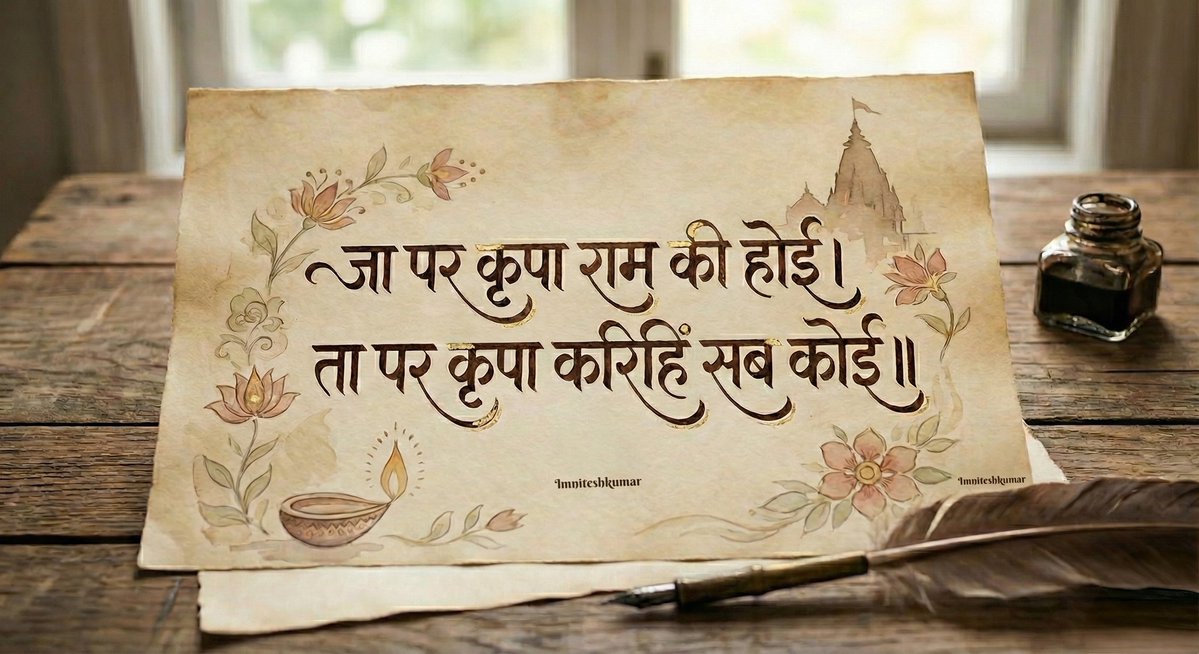 जा पर कृपा राम की होई।
ता पर कृपा करिहिं सब कोई॥
Imniteshkumar
Imniteshkumar